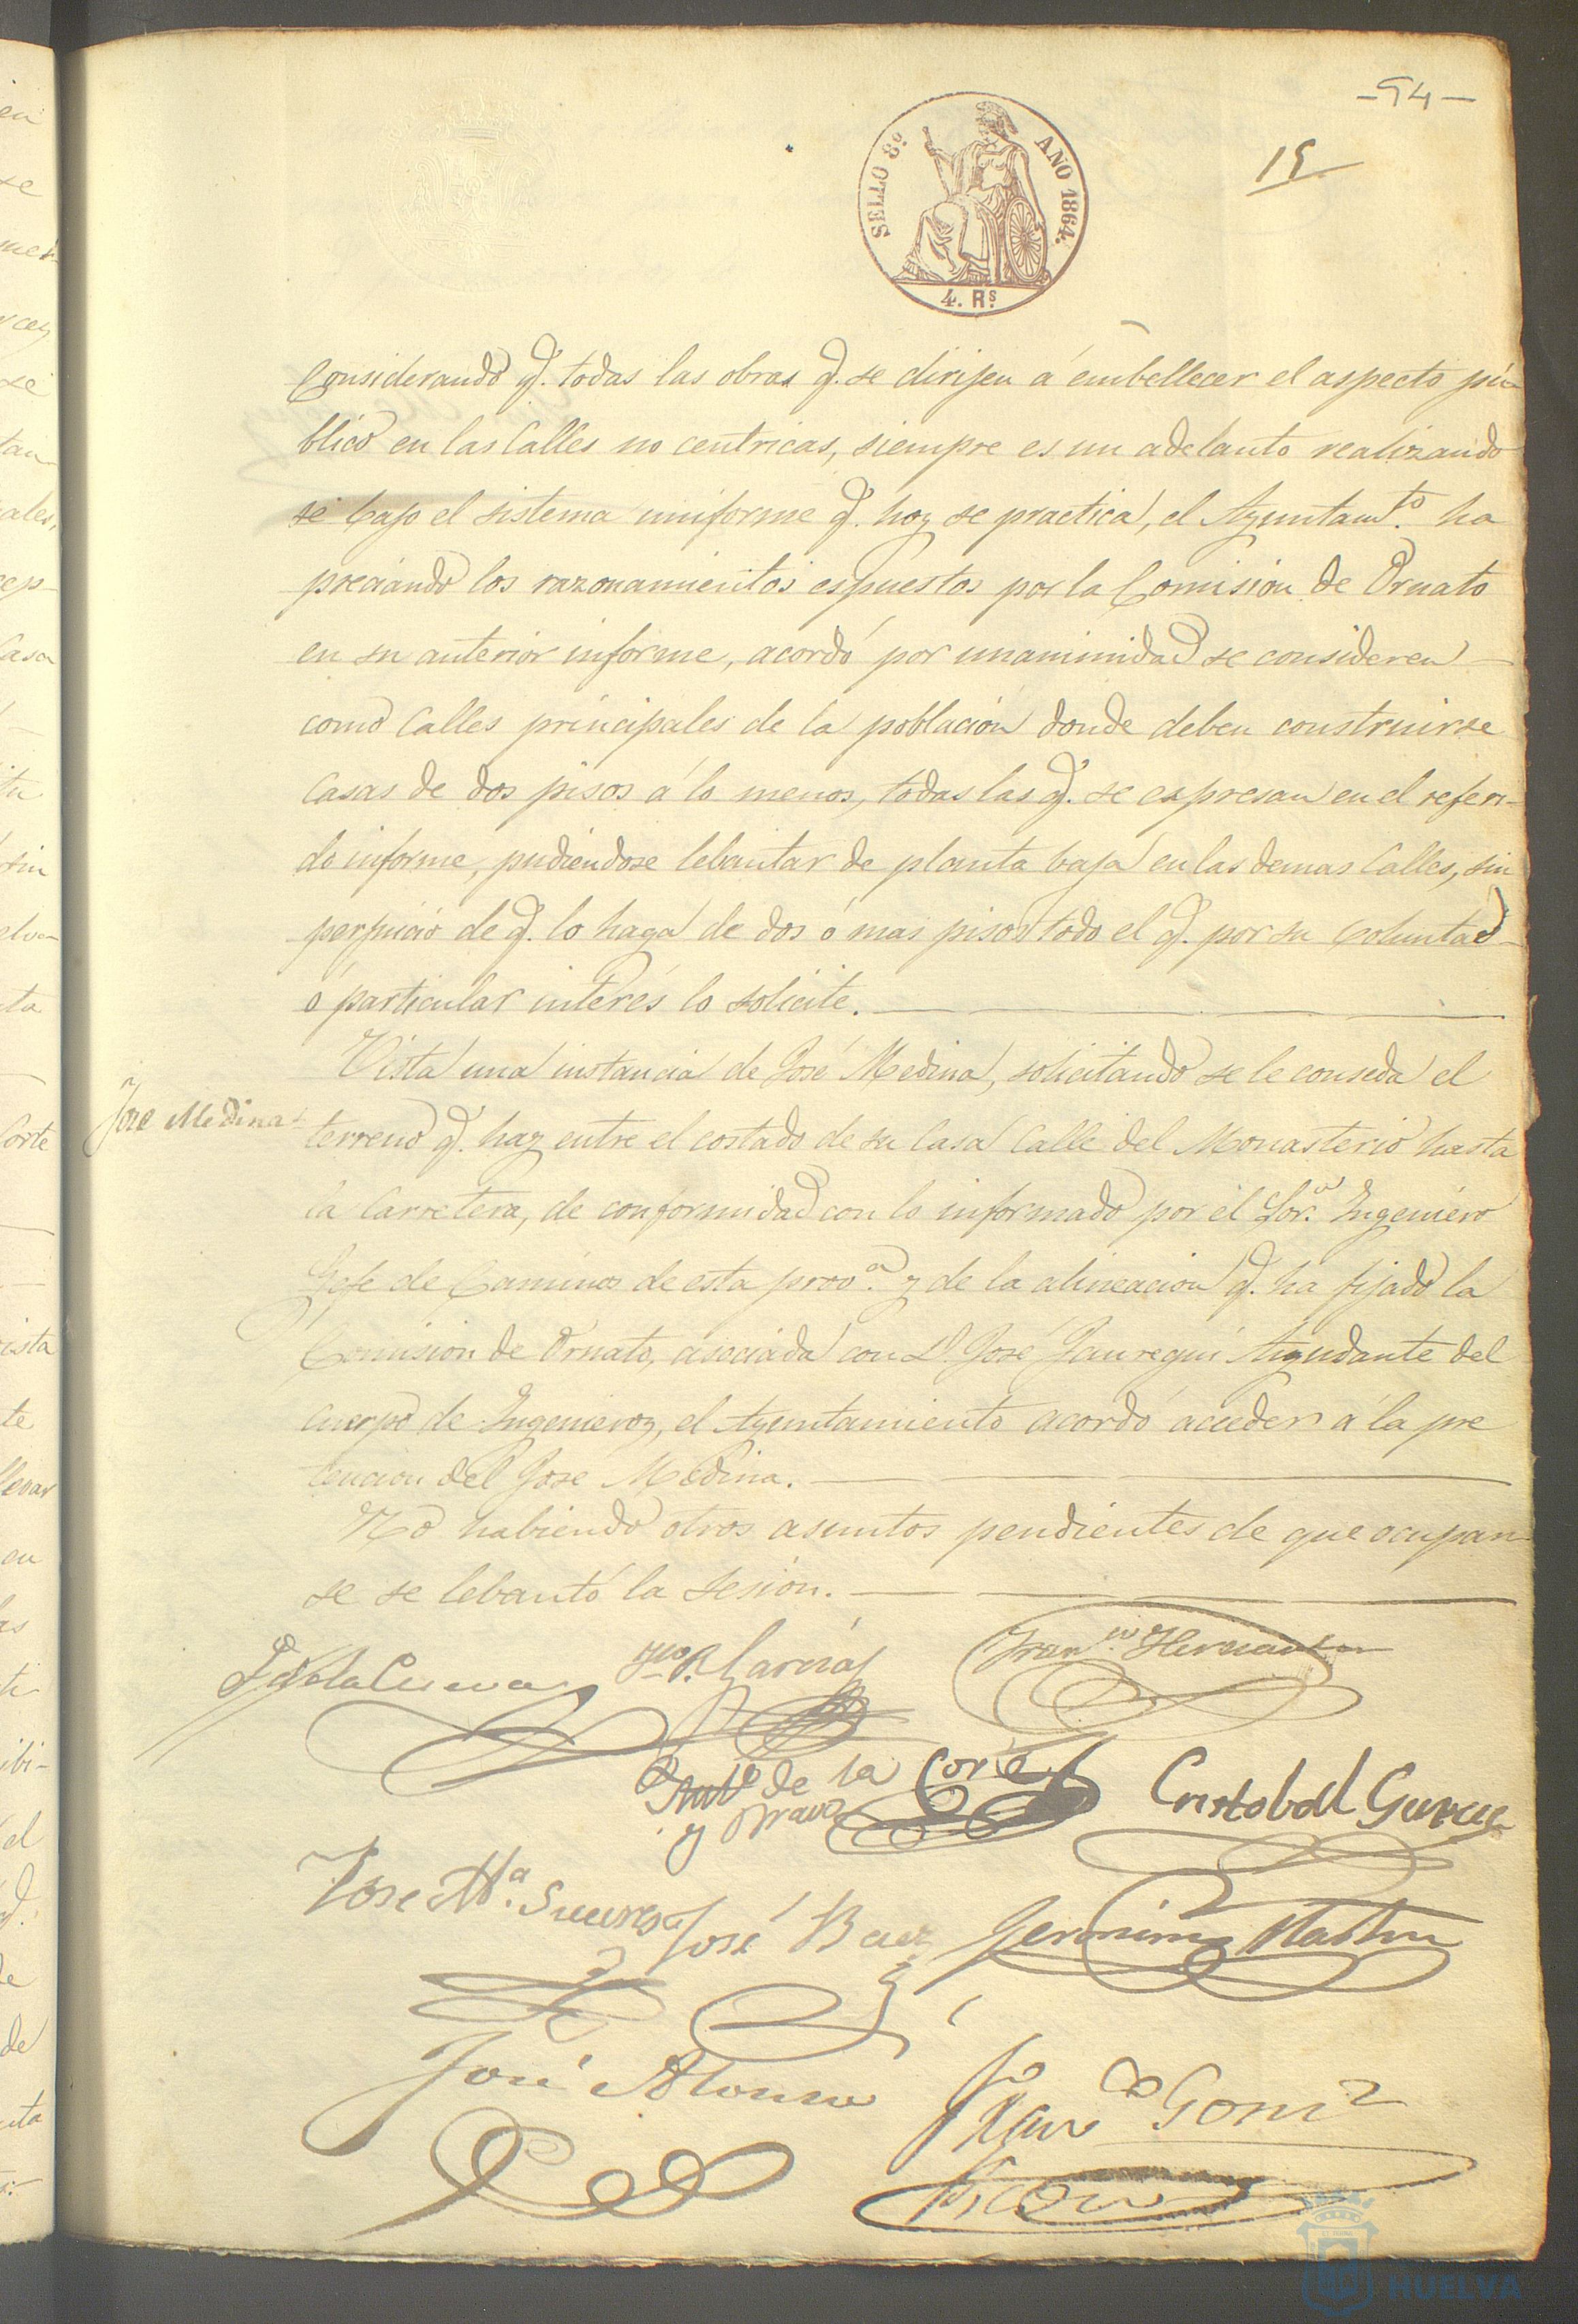 -54-
15
SELLO 8º AÑO 1864.
4. Rs.
Considerando q. todas las obras q. se dirijen á embellecer el aspecto pú-
blico en las Calles no centricas, siempre es un adelanto realizando
se bajo el sistema uniforme q. hoy se practica, el Ayuntamto. ha
preciando los razonamientos espuestos por la Comision de Ornato
en su anterior informe, acordó por unanimidad se consideren
como Calles principales de la poblacion donde deben construirse
Casas de dos pisos á lo menos, todas las q. se expresan en el referi-
do informe, pudiendose lebantar de planta baja en las demas Calles, sin
perjuicio de q. lo haga de dos ó mas pisos todo el q. por su boluntad
ó particular interés lo solicite.
Vista una instancia de José Medina, solicitando se le conseda el
Jose Medina
terreno q. hay entre el costado de su Casa Calle del Monasterio hasta
la Carretera, de conformidad con lo informado por el Sor. Ingeniero
Gefe de Caminos de esta prova. y de la alineacion q. ha fijado la
Comision de Ornato, asociada con D. José Jauregui Ayudante del
cuerpo de Ingenieros, el Ayuntamiento acordó acceder á la pre
tencion del José Medina.
No habiendo otros asuntos pendientes de que ocupar-
se se lebantó la sesion.
de la Cueva
Garcia
Franco. Hernandez
Anto. de la Corte
y Bravo
Cristobal Garcia
Jose Ma. Suarez
José Baez
Geronimo Martin
José Alonso
Franco Gomez
HUELVA